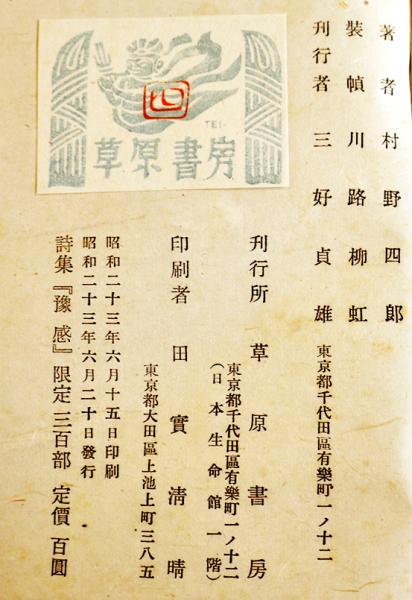 著者 村野四郎
装幀 川路柳虹
刊行者 三好貞雄
東京都千代田區有樂町一ノ十二
刊行所 草原書房
東京都千代田區有樂町一ノ十二
(日本生命館一階)
印刷者 田實清晴
東京都大田區上池上町三八五
昭和二十三年六月十五日印刷
昭和二十三年六月二十日發行
詩集『豫感』限定三百部 定價百圓
四
TEI
草原書房